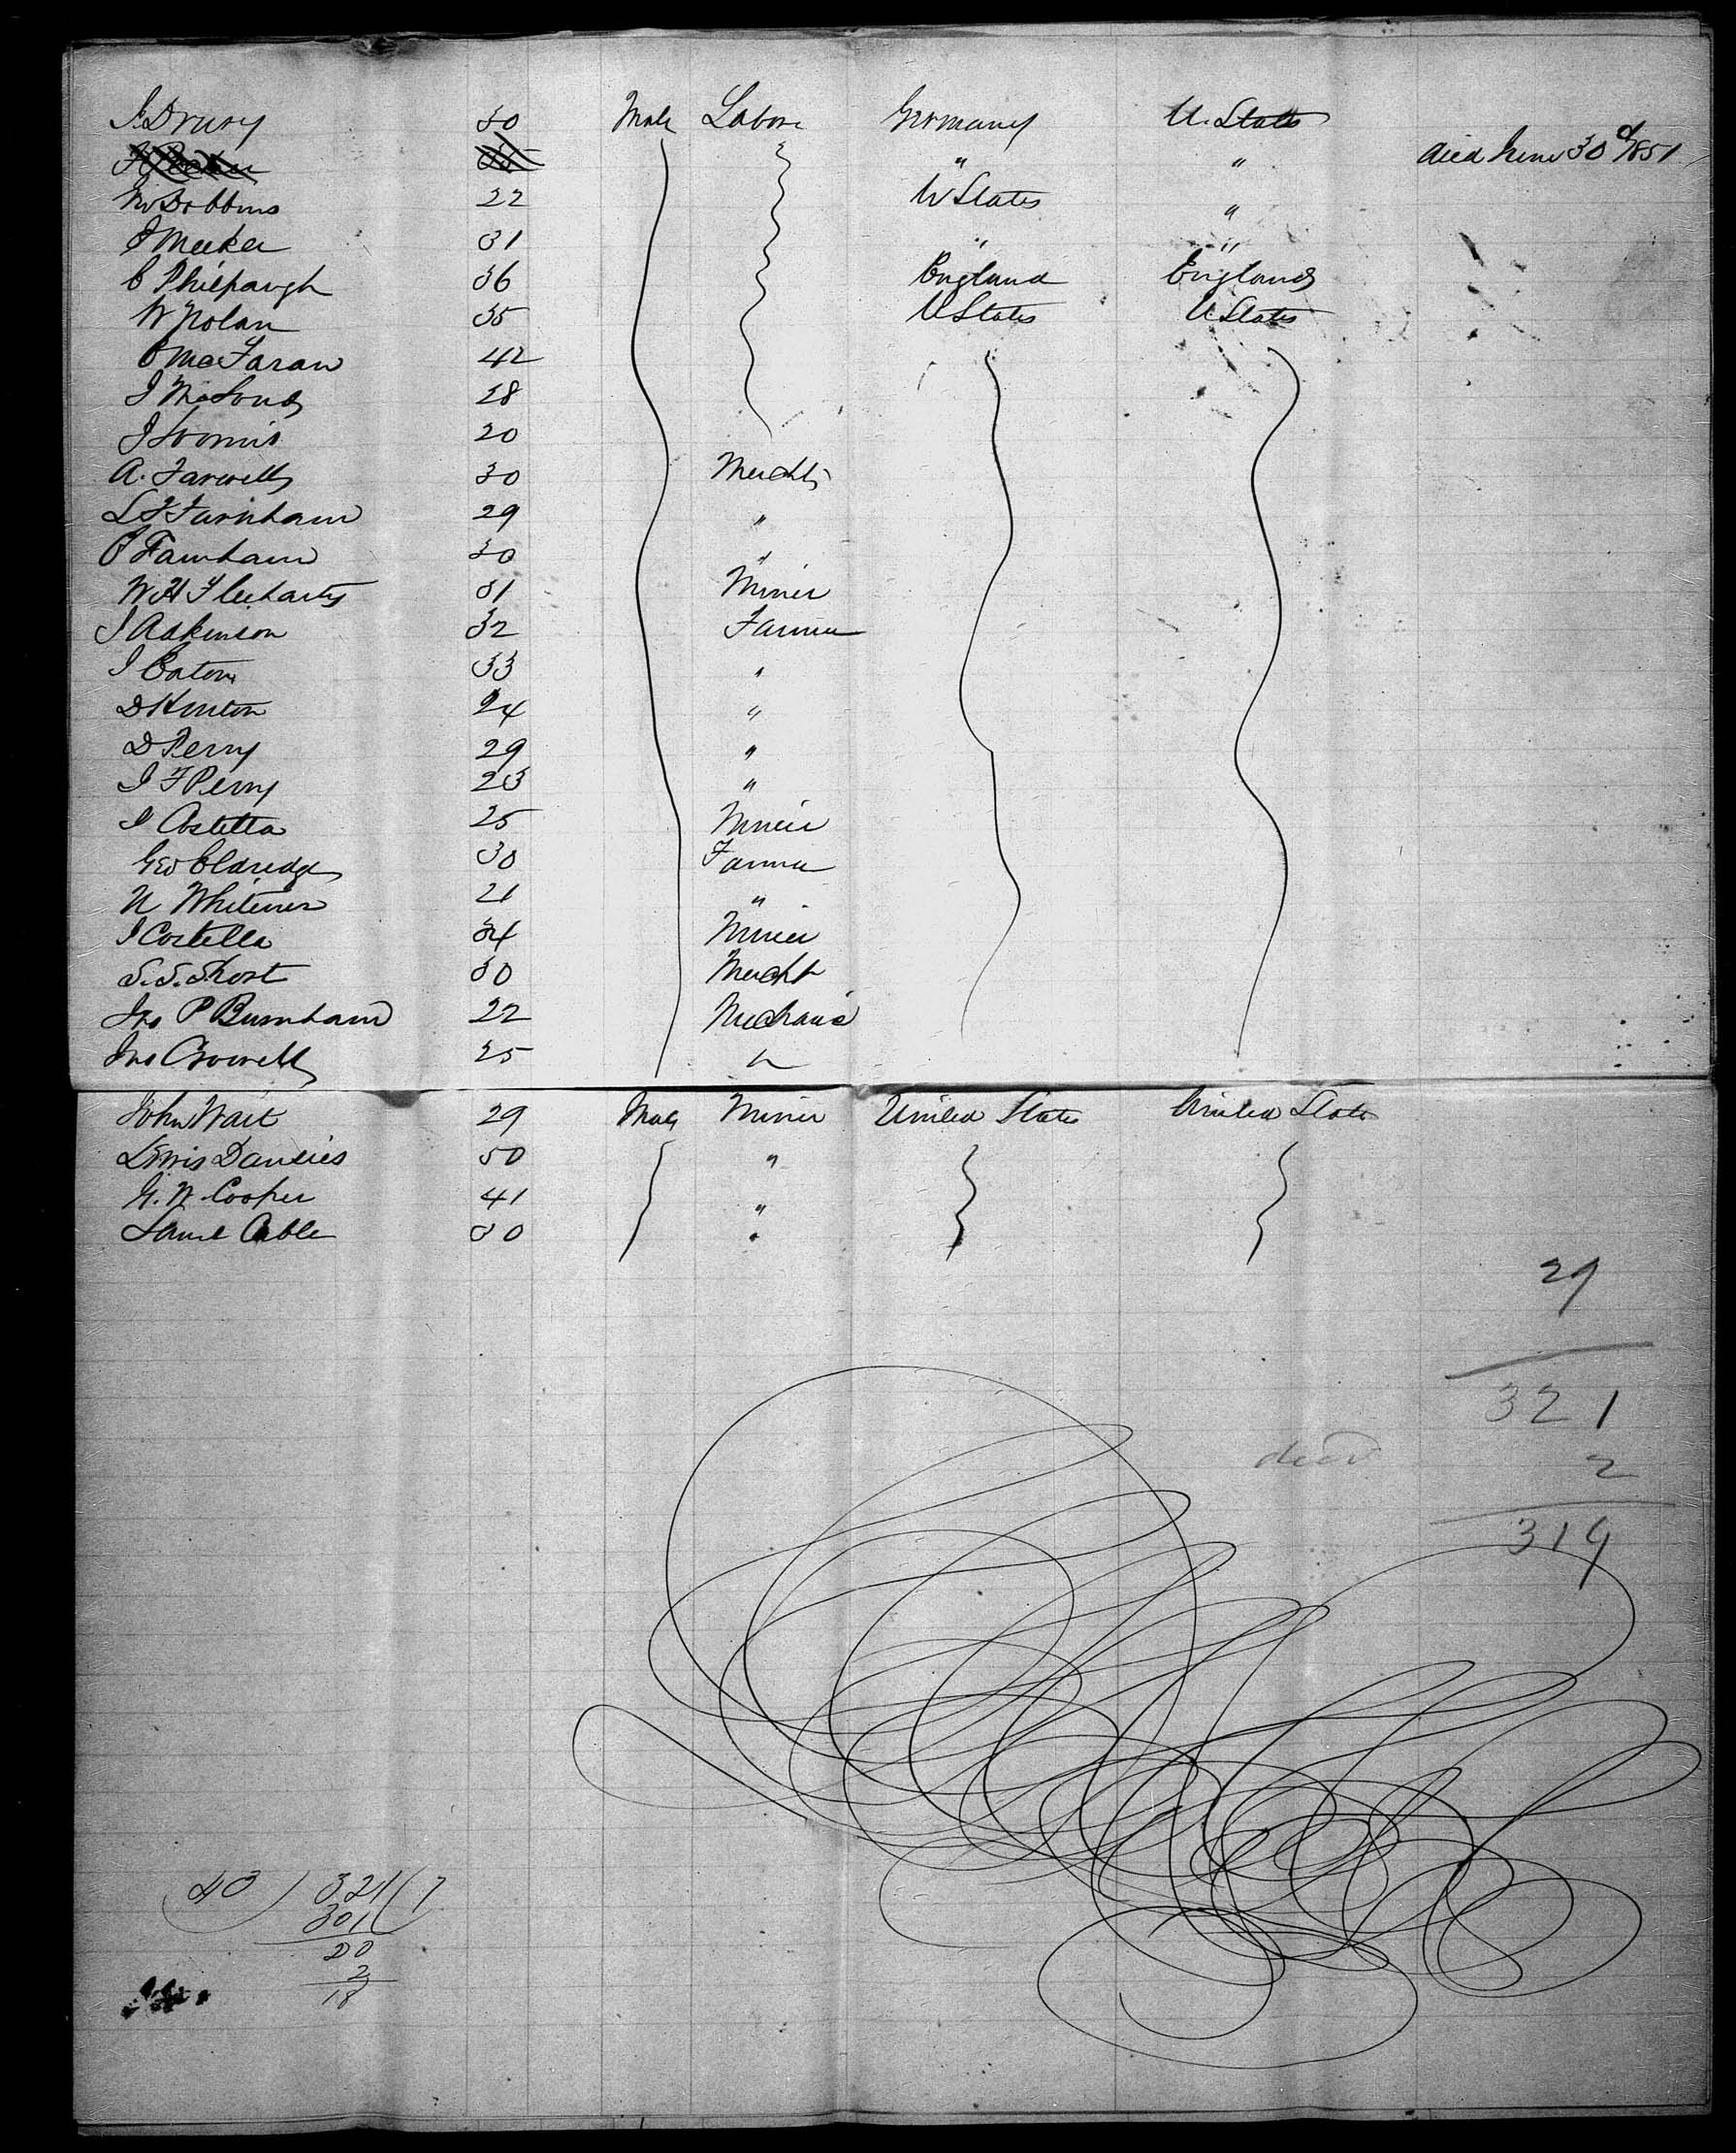 J. Drury 30 Male Labore Germany U. States
" " died June 30th 1851
W Dobbins 22 U States "
J Meeker 31 " "
C Philpaugh 36 England England
W Nolan 35 U States U States
C McFaran 42
J 28
J Loomis 20
A. Farwell 30 Mercht
L F Farnham 29 "
P Farnham 30 "
W H Fleeharty 31 Miner
J Adkinson 32 Farmer
J Eaton 33 "
D Hinton 24 "
D Perry 29 "
J F Perry 23 "
J Costella 25 Miner
Geo Eldredge 30 Farmer
N Whitemer 21 "
J Costella 34 Miner
S. S. Short 30 Mercht
Jno P Burnham 22 Mechanic
Jno Crowell 25 "
John Wait 29 Male Miner United States United States
Lewis Danues 50 "
G. W. Cooper 41 "
Saml Cable 30 "
29
321
died 2
319
43 ) 321 ( 7
301
20
2
18